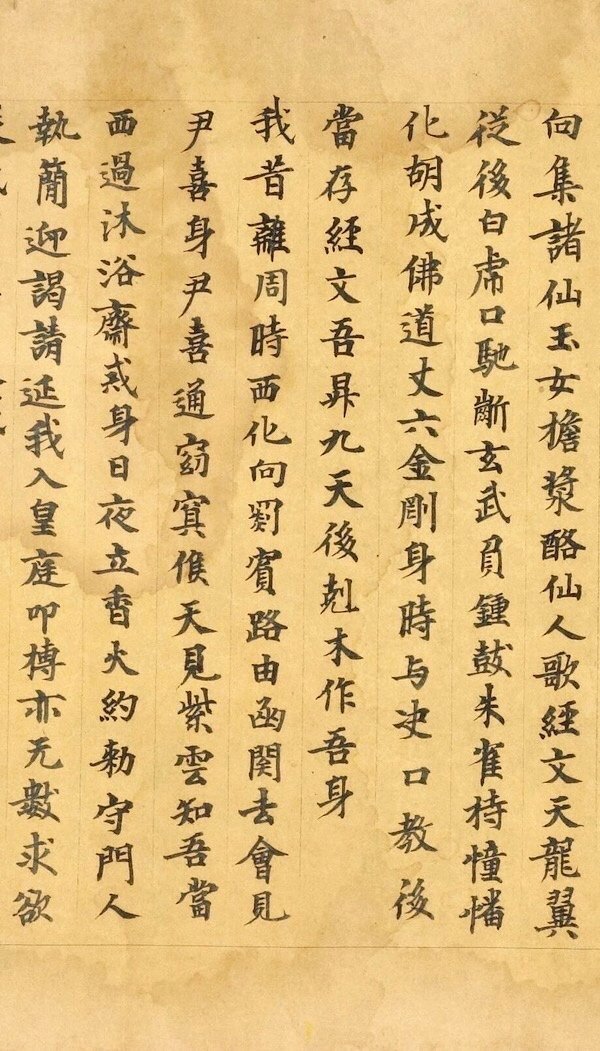 向集諸仙玉女檐漿酪仙人歌經文天龍翼
從後白虎口馳斷玄武負鍾鼓朱雀持憧幡
化胡成佛道丈六金剛身時与決口教後
當存經文吾昇九天後剋木作吾身
我昔離周時西化向罽賓路由函関去會見
尹喜身尹喜通窈冥候天見紫雲知吾當
西過沐浴齋戒身日夜立香火約勑守門人
執簡迎謁請延我入皇庭叩搏亦无數求欲